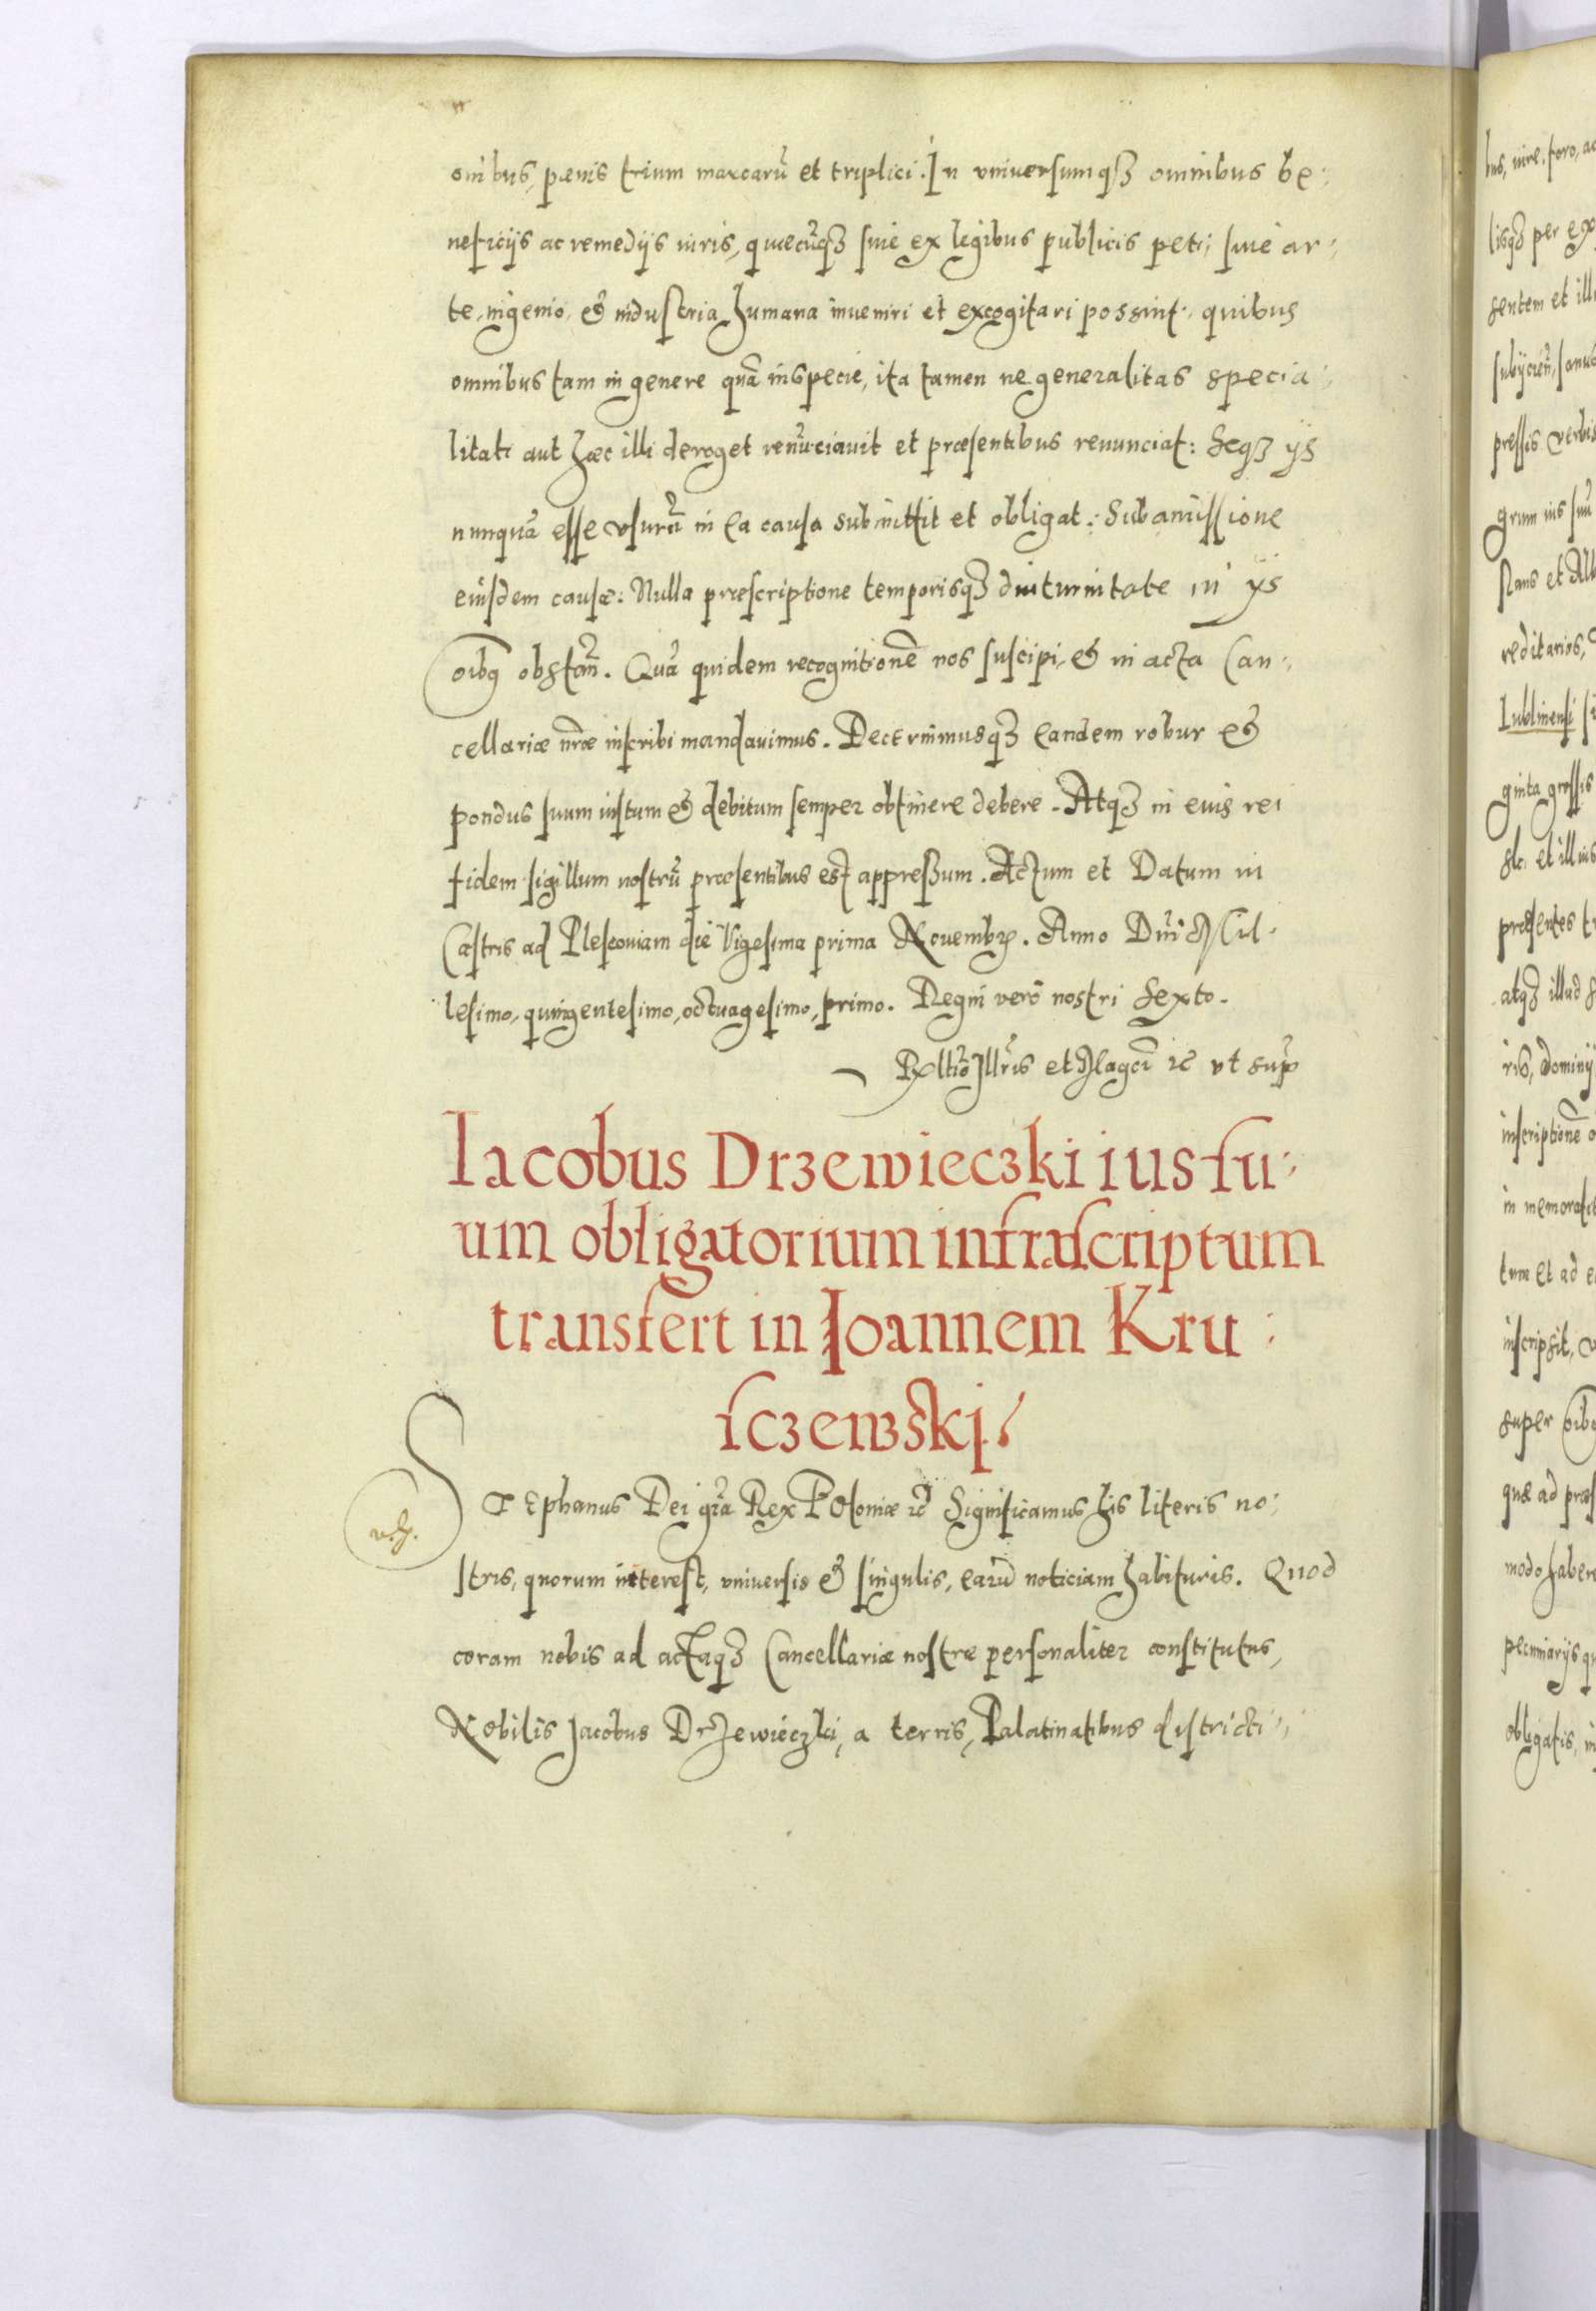 onibus, pœnis trium marcarũ et triplici. In vniuersumqȝ omnibus be:
neficijs ac remedijs iuris, quæcũqȝ siue ex legibus publicis peti, siue ar:
te, ingenio, & industria humana inueniri et excogitari possint, quibus
omnibus tam in genere quã in specie, ita tamen ne generalitas specia:
litati aut hæc illi deroget renũciauit et præsentibus renunciat: Seqȝ ijs
nunquã esse vsurũ in ea causa submittit et obligat: Sub amissione
eiusdem causæ: Nulla præscriptione temporisqȝ diuturnitate in ijs
oibꝗ obstañ. Quã quidem recognitionẽ nos suscipi, & in acta Can:
cellariæ nr̃æ inscribi mandauimus. Decernimusqȝ eandem robur &
pondus suum iustum & debitum semper obtinere debere. Atqȝ in eius rei
fidem sigillum nostrũ præsentibus est appressum. Actum et Datum in
Castris ad Plescouiam die Vigesima prima Nouembr. Anno Dñi Mil-
lesimo, quingentesimo, octuagesimo, primo. Regni verò nostri Sexto.
Rxltio Illr̃is et Magci ꝛc̃ vt sup̃
Iacobus Drzewieczki ius su:
um obligatorium infrascriptum
transfert in Ioannem Kru:
sczewski.
STephanus Dei gr̃a Rex Poloniæ ꝛc̃ Significamus his literis no:
stris, quorum interest, vniuersis & singulis, earũ noticiam habituris. Quod
coram nobis ad actaqȝ Cancellariæ nostræ personaliter constitutus,
Nobilis Jacobus Drzewieczki, a terris, Palatinatibus districti:
bus, iure, foro, ac
lisqȝ per ex
sentem et ill
pressis verbis
grum ius suũ
reditarios,
Lublinensi
ginta grossis
præsentes
atqȝ illud
ris, dominij
inscriptionẽ
in memorat
tum et ad e
inscripsit,
super oib
quæ ad præs
modo haber
pecuniarijs qu
obligatis, in